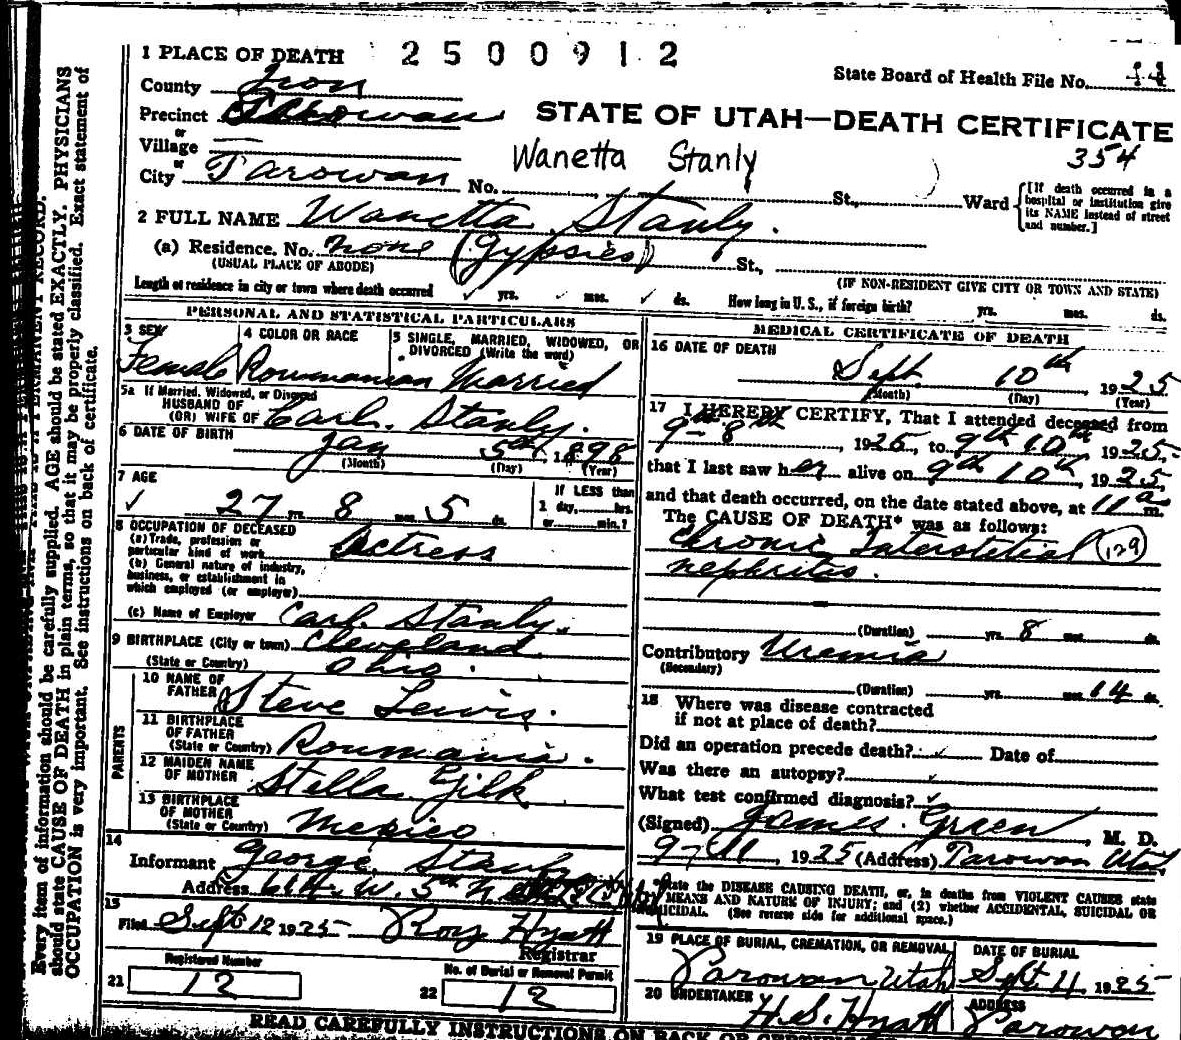 1 PLACE OF DEATH 2500912
State Board of Health File No. 11
County Iron
Precinct Parowan
STATE OF UTAH—DEATH CERTIFICATE
or
Village
Wanetta Stanly 354
or
City Parowan No. St., Ward
[If death occurred in a
hospital or institution give
its NAME instead of street
and number.]
2 FULL NAME Wanetta Stanly.
(a) Residence. No. none (Gypsies) St.,
(USUAL PLACE OF ABODE) (IF NON-RESIDENT GIVE CITY OR TOWN AND STATE)
Length of residence in city or town where death occurred yrs. mos. ds. How long in U. S., if foreign birth? yrs. mos. ds.
PERSONAL AND STATISTICAL PARTICULARS
3 SEX 4 COLOR OR RACE 5 SINGLE, MARRIED, WIDOWED, OR
DIVORCED (Write the word)
Female Roumanian Married
5a If Married, Widowed, or Divorced
HUSBAND OF
(OR) WIFE OF Carl. Stanly.
6 DATE OF BIRTH Jan 5th, 1898
(Month) (Day) (Year)
7 AGE
27 yrs. 8 mos. 5 ds.
If LESS than
1 day, hrs.
or min.?
8 OCCUPATION OF DECEASED
(a) Trade, profession or
particular kind of work Actress
(b) General nature of industry,
business, or establishment in
which employed (or employer)
(c) Name of Employer Carl. Stanly.
9 BIRTHPLACE (City or town) Cleveland
(State or Country) Ohio.
PARENTS
10 NAME OF
FATHER Steve Lewis.
11 BIRTHPLACE
OF FATHER
(State or Country) Roumania.
12 MAIDEN NAME
OF MOTHER Stella
13 BIRTHPLACE
OF MOTHER
(State or Country) Mexico
14
Informant George Stanly
Address 614 W. 5th N.
15
Filed Sept 12 1925 Roy Hyatt
Registrar
Registered Number No. of Burial or Removal Permit
21 12 22 12
MEDICAL CERTIFICATE OF DEATH
16 DATE OF DEATH
Sept. 10th 1925
(Month) (Day) (Year)
17 I HEREBY CERTIFY, That I attended deceased from
9th 8th, 1925, to 9th 10th, 1925.
that I last saw her alive on 9th 10th, 1925.
and that death occurred, on the date stated above, at 11 a m.
The CAUSE OF DEATH* was as follows:
Chronic Interstetial (129)
nephrites.
(Duration) yrs. 8 mos. ds.
Contributory Uremia
(Secondary)
(Duration) yrs. mos. 14 ds.
18 Where was disease contracted
if not at place of death?
Did an operation precede death? Date of
Was there an autopsy?
What test confirmed diagnosis?
(Signed) James. Green, M. D.
9-11, 1925 (Address) Parowan Utah
*State the DISEASE CAUSING DEATH, or, in deaths from VIOLENT CAUSES state
MEANS AND NATURE OF INJURY; and (2) whether ACCIDENTAL, SUICIDAL OR
HOMICIDAL. (See reverse side for additional space.)
19 PLACE OF BURIAL, CREMATION, OR REMOVAL DATE OF BURIAL
Parowan Utah Sept. 11 1925
20 UNDERTAKER ADDRESS
H.S. Hyatt Parowan
READ CAREFULLY INSTRUCTIONS ON BACK OF
Every item of information should be carefully supplied. AGE should be stated EXACTLY. PHYSICIANS
should state CAUSE OF DEATH in plain terms, so that it may be properly classified. Exact statement of
OCCUPATION is very important. See instructions on back of certificate.